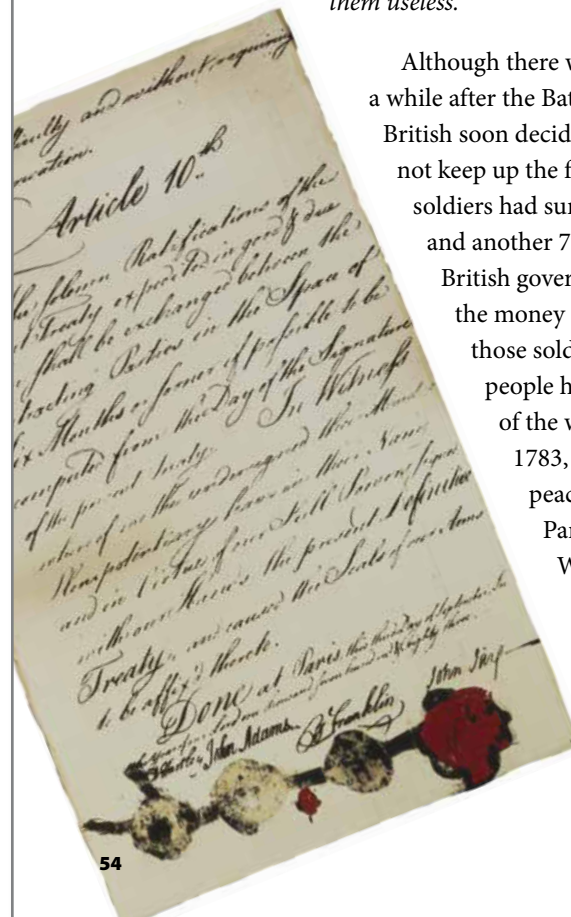 them useless.
Although there w
a while after the Bat
British soon decid
not keep up the f
soldiers had sur
and another 7
British gover
the money
those sold
people h
of the w
1783,
peac
Par
W
culty and without requiring
Article 10th
he solemn Ratifications of the
t Treaty expedited in good & due
shall be exchanged between the
tracting Parties in the Space of
ix Months or sooner if possible to be
computed from the Day of the Signature
of the present Treaty. In Witness
whereof we the undersigned their
Plenipotentiary have in their Name
and in Virtue of our Full Powers
with our Hands the present Definitive
Treaty, and caused the Seals of our Arms
to be affix'd thereto.
Done at Paris, this third day of September, In
the Year of our Lord one thousand seven hundred & eighty three.
Hartley John Adams B Franklin John Jay
54